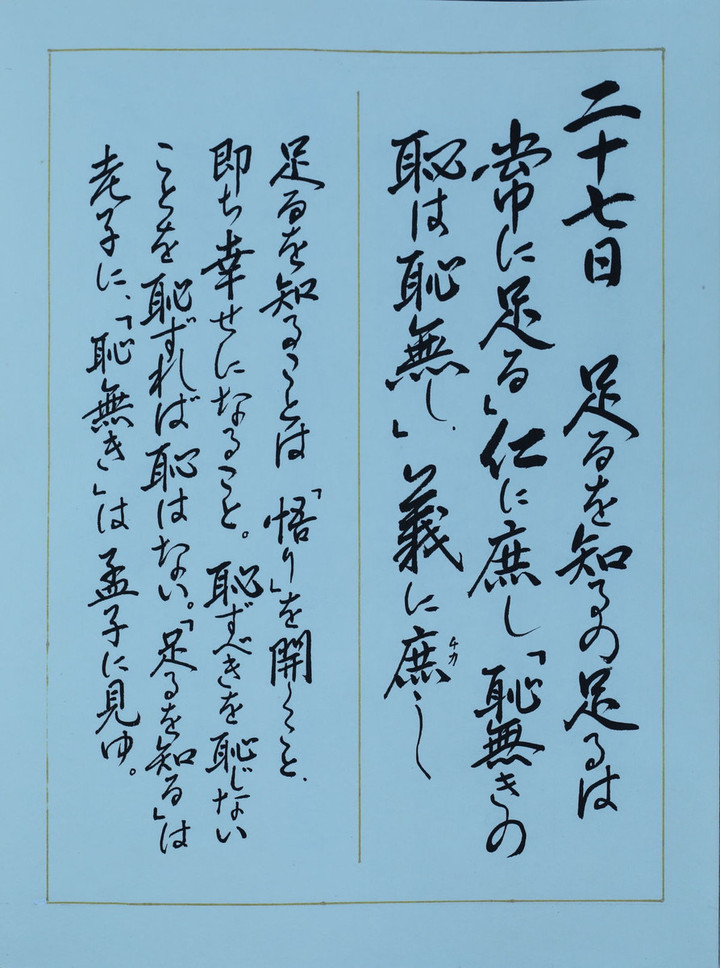 二十七日 足るを知るの足るは
常に足る」仁に庶し「恥無きの
恥は恥無し」義に庶し
チカ
足るを知ることは「悟り」を開くこと、
即ち幸せになること。恥ずべきを恥じない
ことを恥ずれば恥はない。「足るを知る」は
老子に、「恥無き」は孟子に見ゆ。